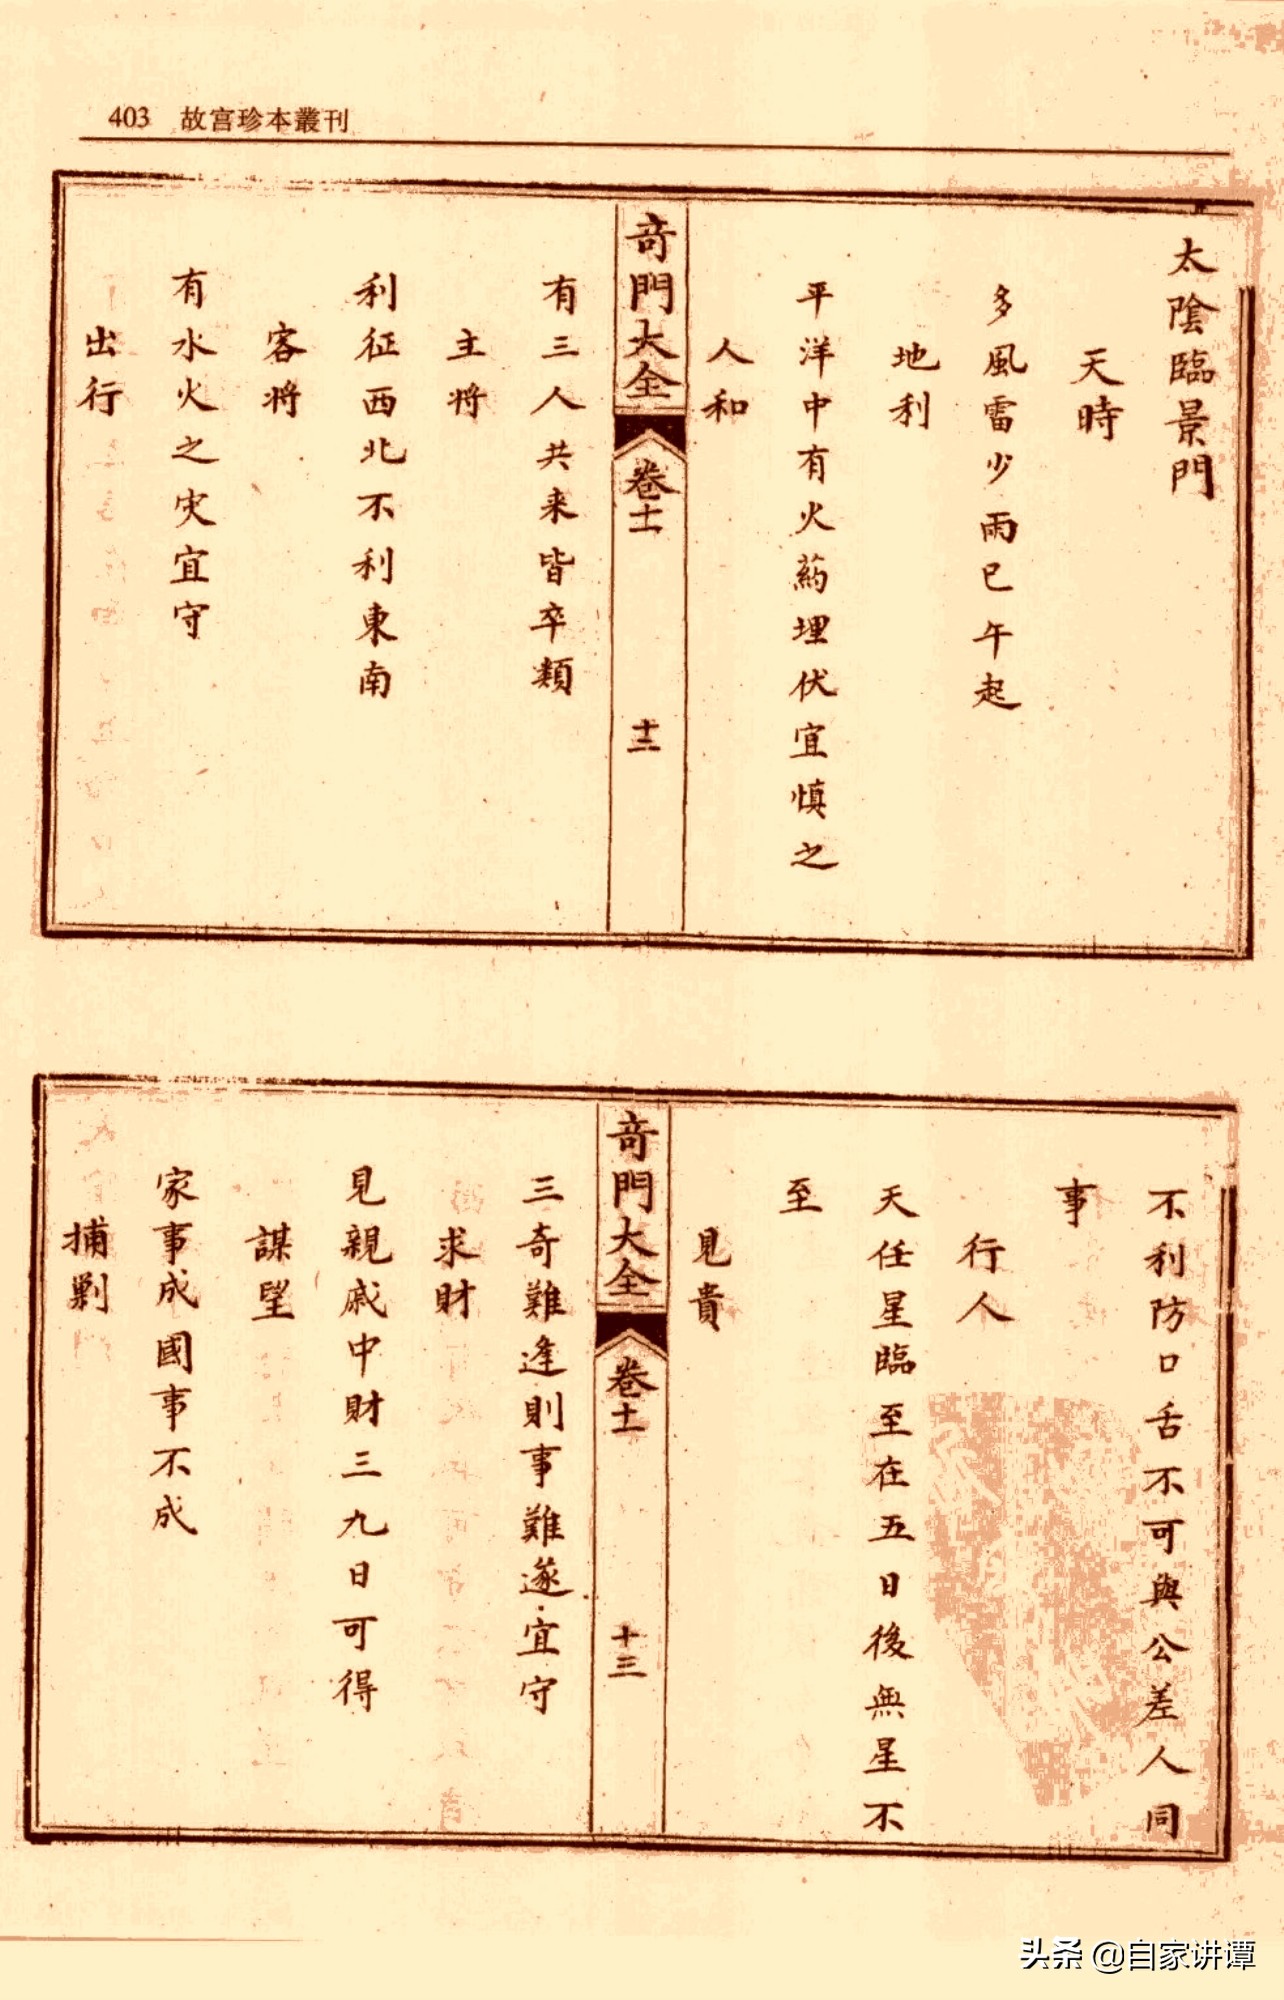 403 故宮珍本叢刊
太陰臨景門
天時
多風雷少雨巳午起
地利
平洋中有火葯埋伏宜慎之
人和
奇門大全 卷十一 十二
有三人共来皆卒類
主将
利征西北不利東南
客将
有水火之灾宜守
出行
不利防口舌不可與公差人同
事
行人
天任星臨至在五日後無星不
至
見貴
奇門大全 卷十一 十三
三奇難逢則事難遂宜守
求財
見親戚中財三九日可得
謀望
家事成國事不成
捕剿
头条 @自家讲谭